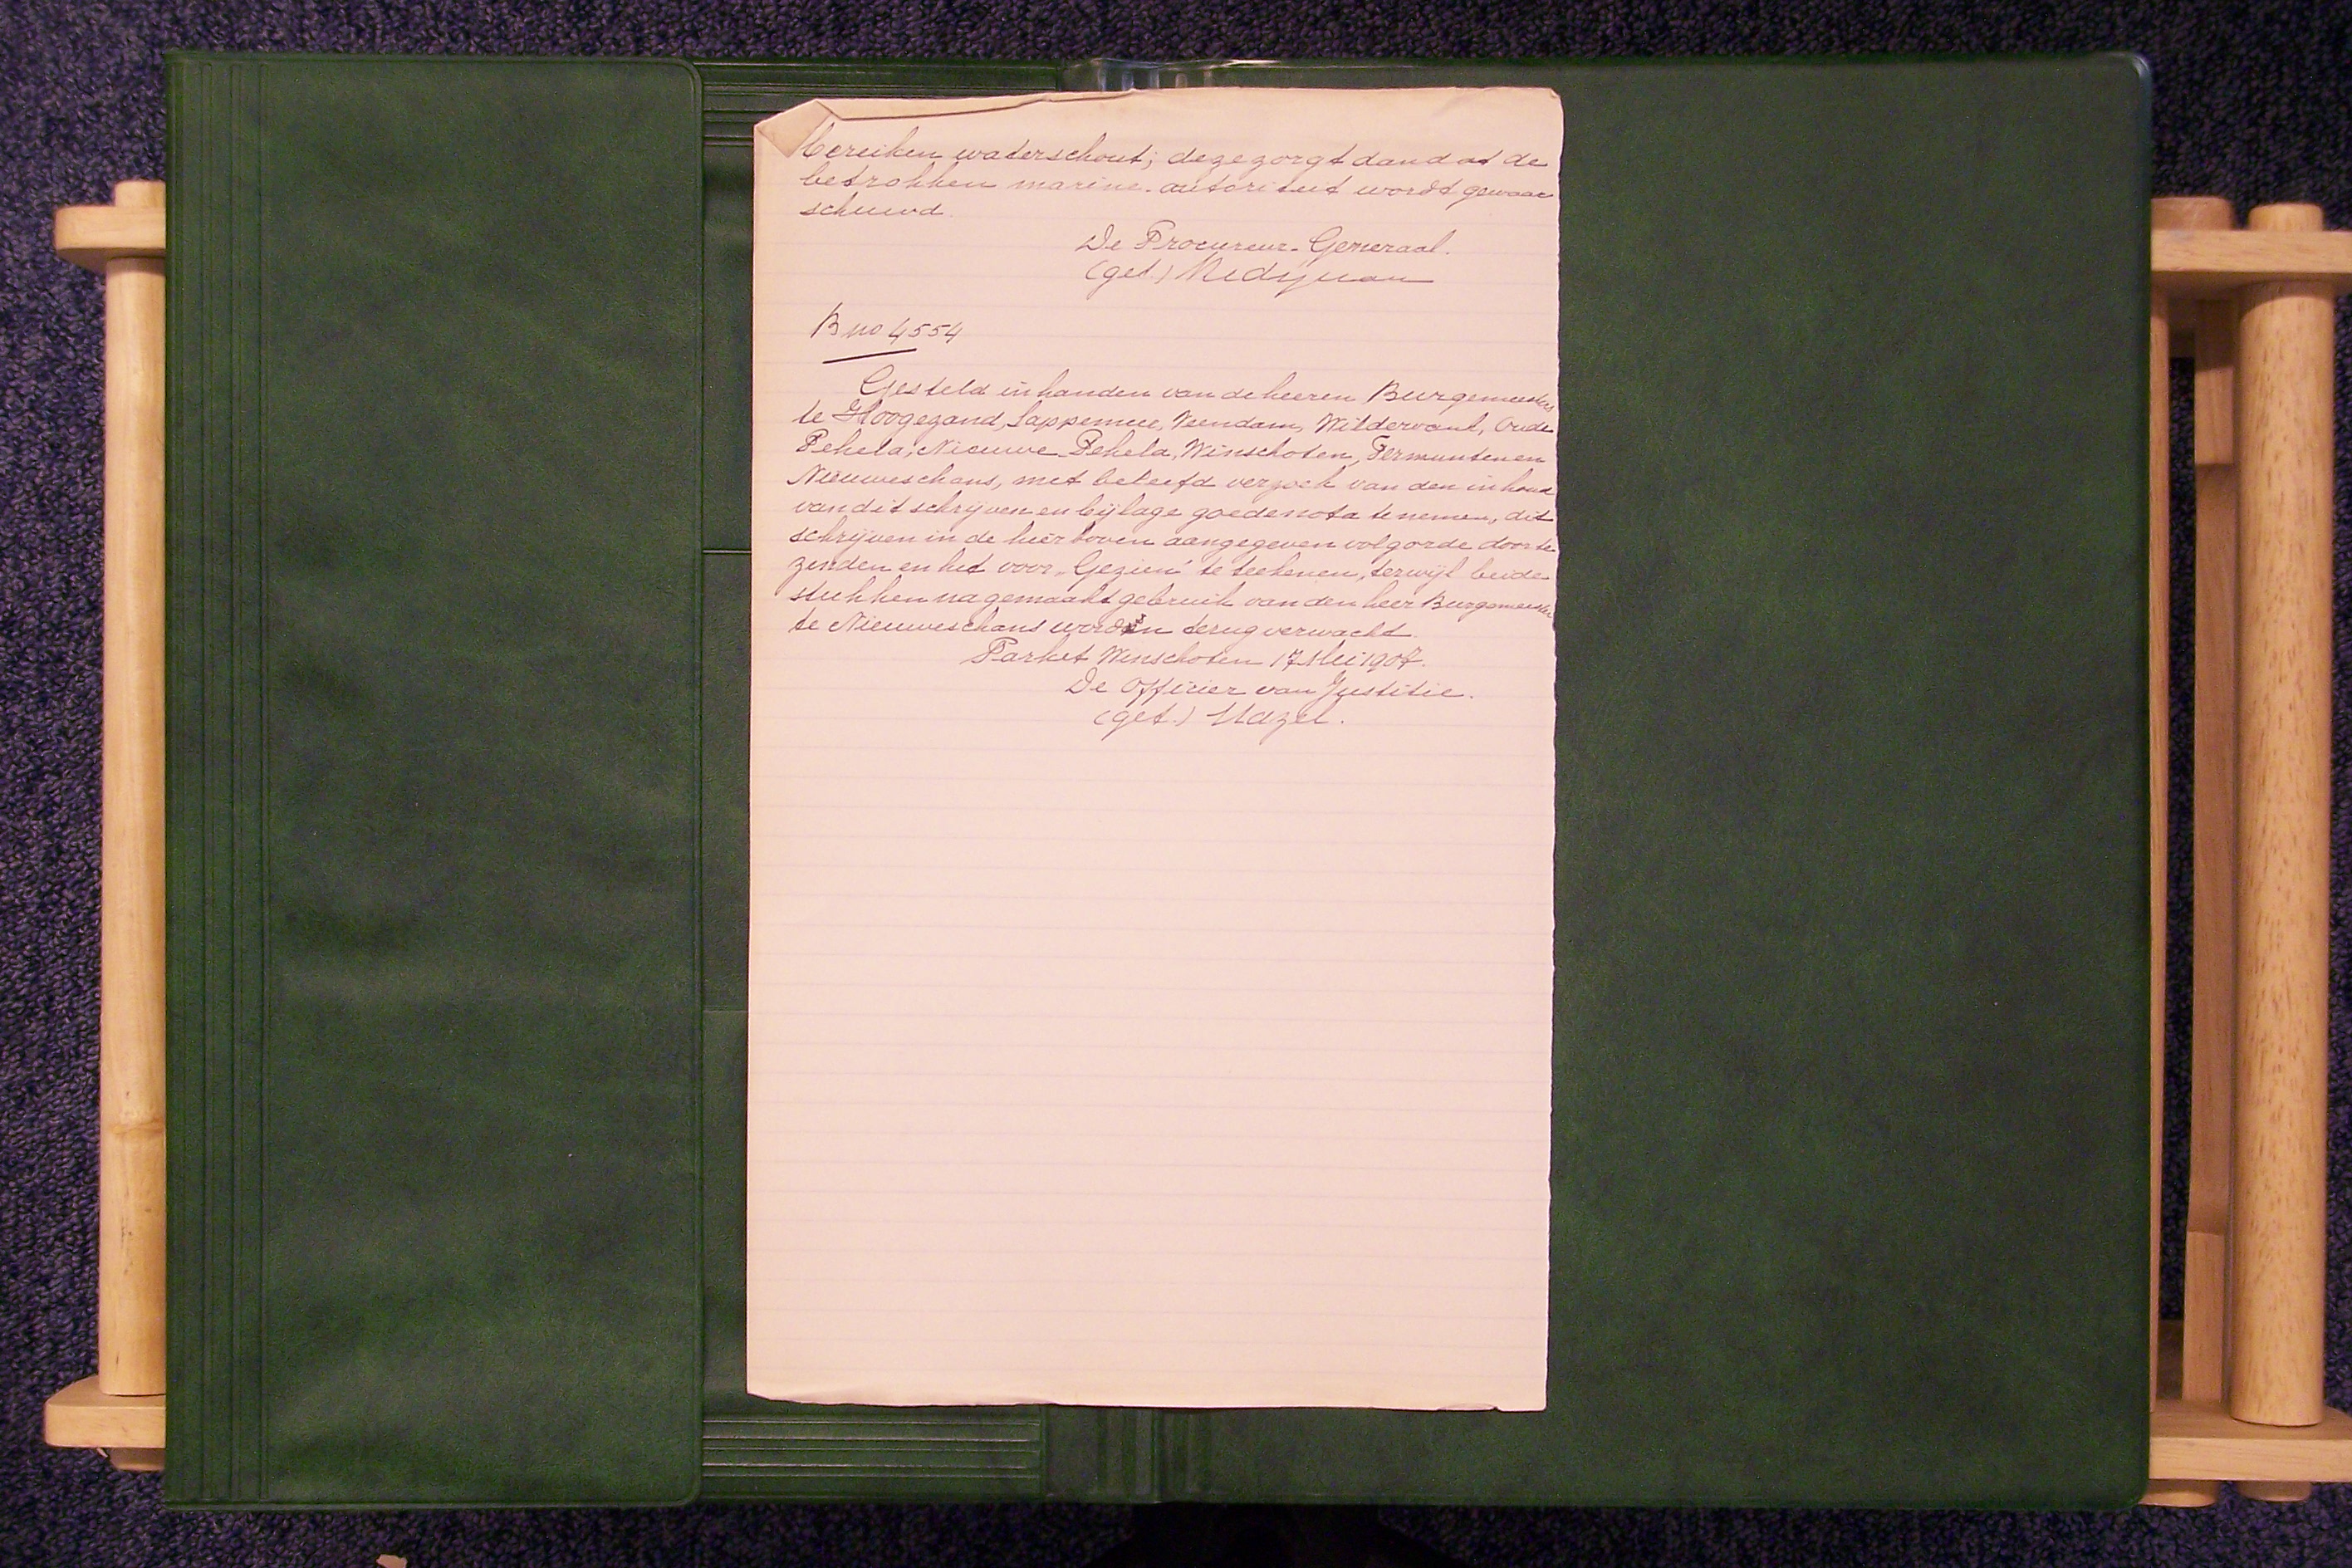 bereiken waterschout; deze zorgt dan dat de
betrokken marine-autoriteit wordt gewaar
schuwd.
De Procureur-Generaal.
(get.)
B no 4554
Gesteld in handen van de heeren Burgemeesters
te Hoogezand, Sappemeer, Veendam, Wildervank, Oude
Pekela, Nieuwe Pekela, Winschoten, Termunten en
Nieuweschans, met beleefd verzoek van den inhoud
van dit schrijven en bijlage goede nota te nemen, dit
schrijven in de hierboven aangegeven volgorde door te
zenden en het voor „Gezien" te teekenen, terwijl beide
stukken na gemaakt gebruik van den heer Burgemeester
te Nieuweschans worden terug verwacht.
Parket Winschoten 17 Mei 1907.
De Officier van Justitie.
(get.)